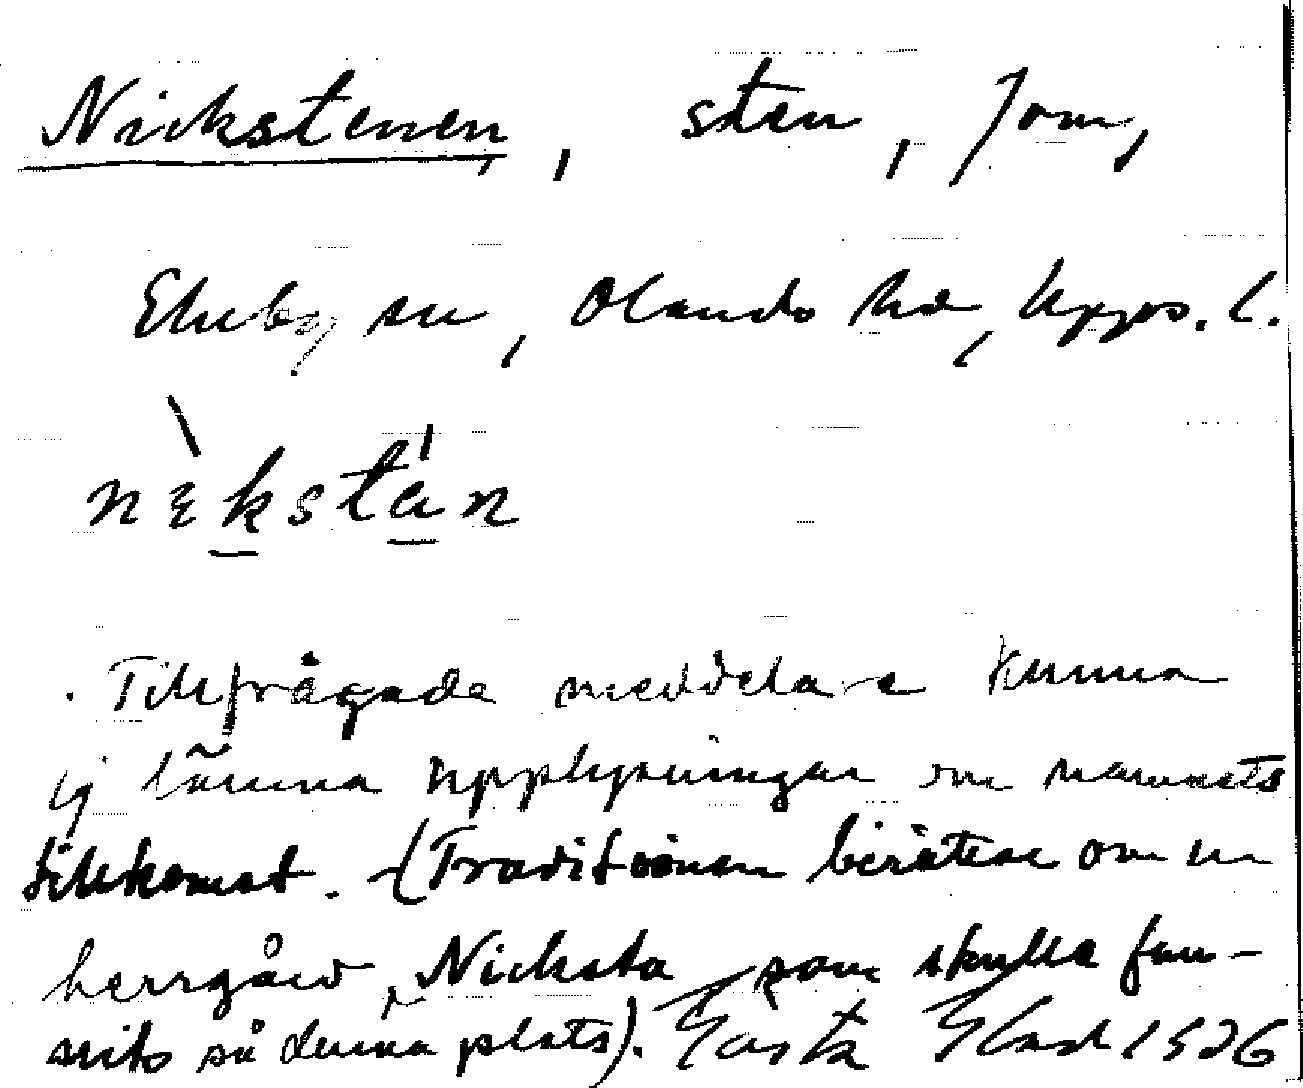 Nickstenen, sten, forn,
Ekeby sn, Olands hd, Upps. l.
nɛ̀kstán
Tillfrågade meddelare kunna
ej lämna upplysningar om namnets
tillkomst. (Traditionen berättar om en
herrgård, Nicksta som skulle fun-
nits på denna plats). Gösta 1926